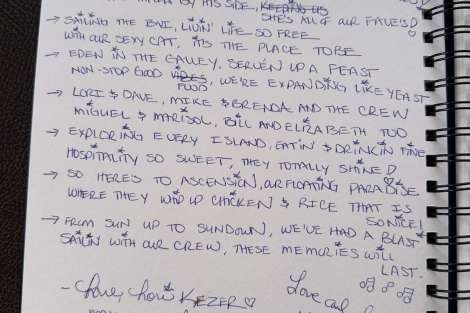 BY HIS SIDE, KEEPING US
SHE'S ALL OF OUR FAVE'S!
→ SAILING THE BVI, LIVIN' LIFE SO FREE
WITH OUR SEXY CAT, ITS THE PLACE TO BE
→ EDEN IN THE GALLEY, SERVEN UP A FEAST
NON-STOP GOOD VIBES FOOD, WE'RE EXPANDING LIKE YEAST
→ LORI & DAVE, MIKE & BRENDA AND THE CREW
MIGUEL & MARISOL, BILL AND ELIZABETH TOO
→ EXPLORING EVERY ISLAND, EATIN' & DRINKIN FINE
HOSPITALITY SO SWEET, THEY TOTALLY SHINE!
→ SO HERES TO ASCENSION, OUR FLOATING PARADISE
WHERE THEY WIP UP CHICKEN & RICE THAT IS
SO NICE!
→ FROM SUN UP TO SUNDOWN, WE'VE HAD A BLAST
SAILIN WITH OUR CREW, THESE MEMORIES WILL
LAST.
- Love, Lori KIEZER ♡
Love and